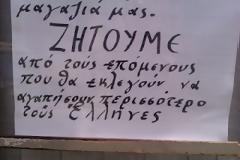 μαγαζιά μας.
ΖΗΤΟΥΜΕ
από τούς επόμενους
που θα εκλεγούν να
αγαπήσουν περισσότερο
τούς Έλληνες